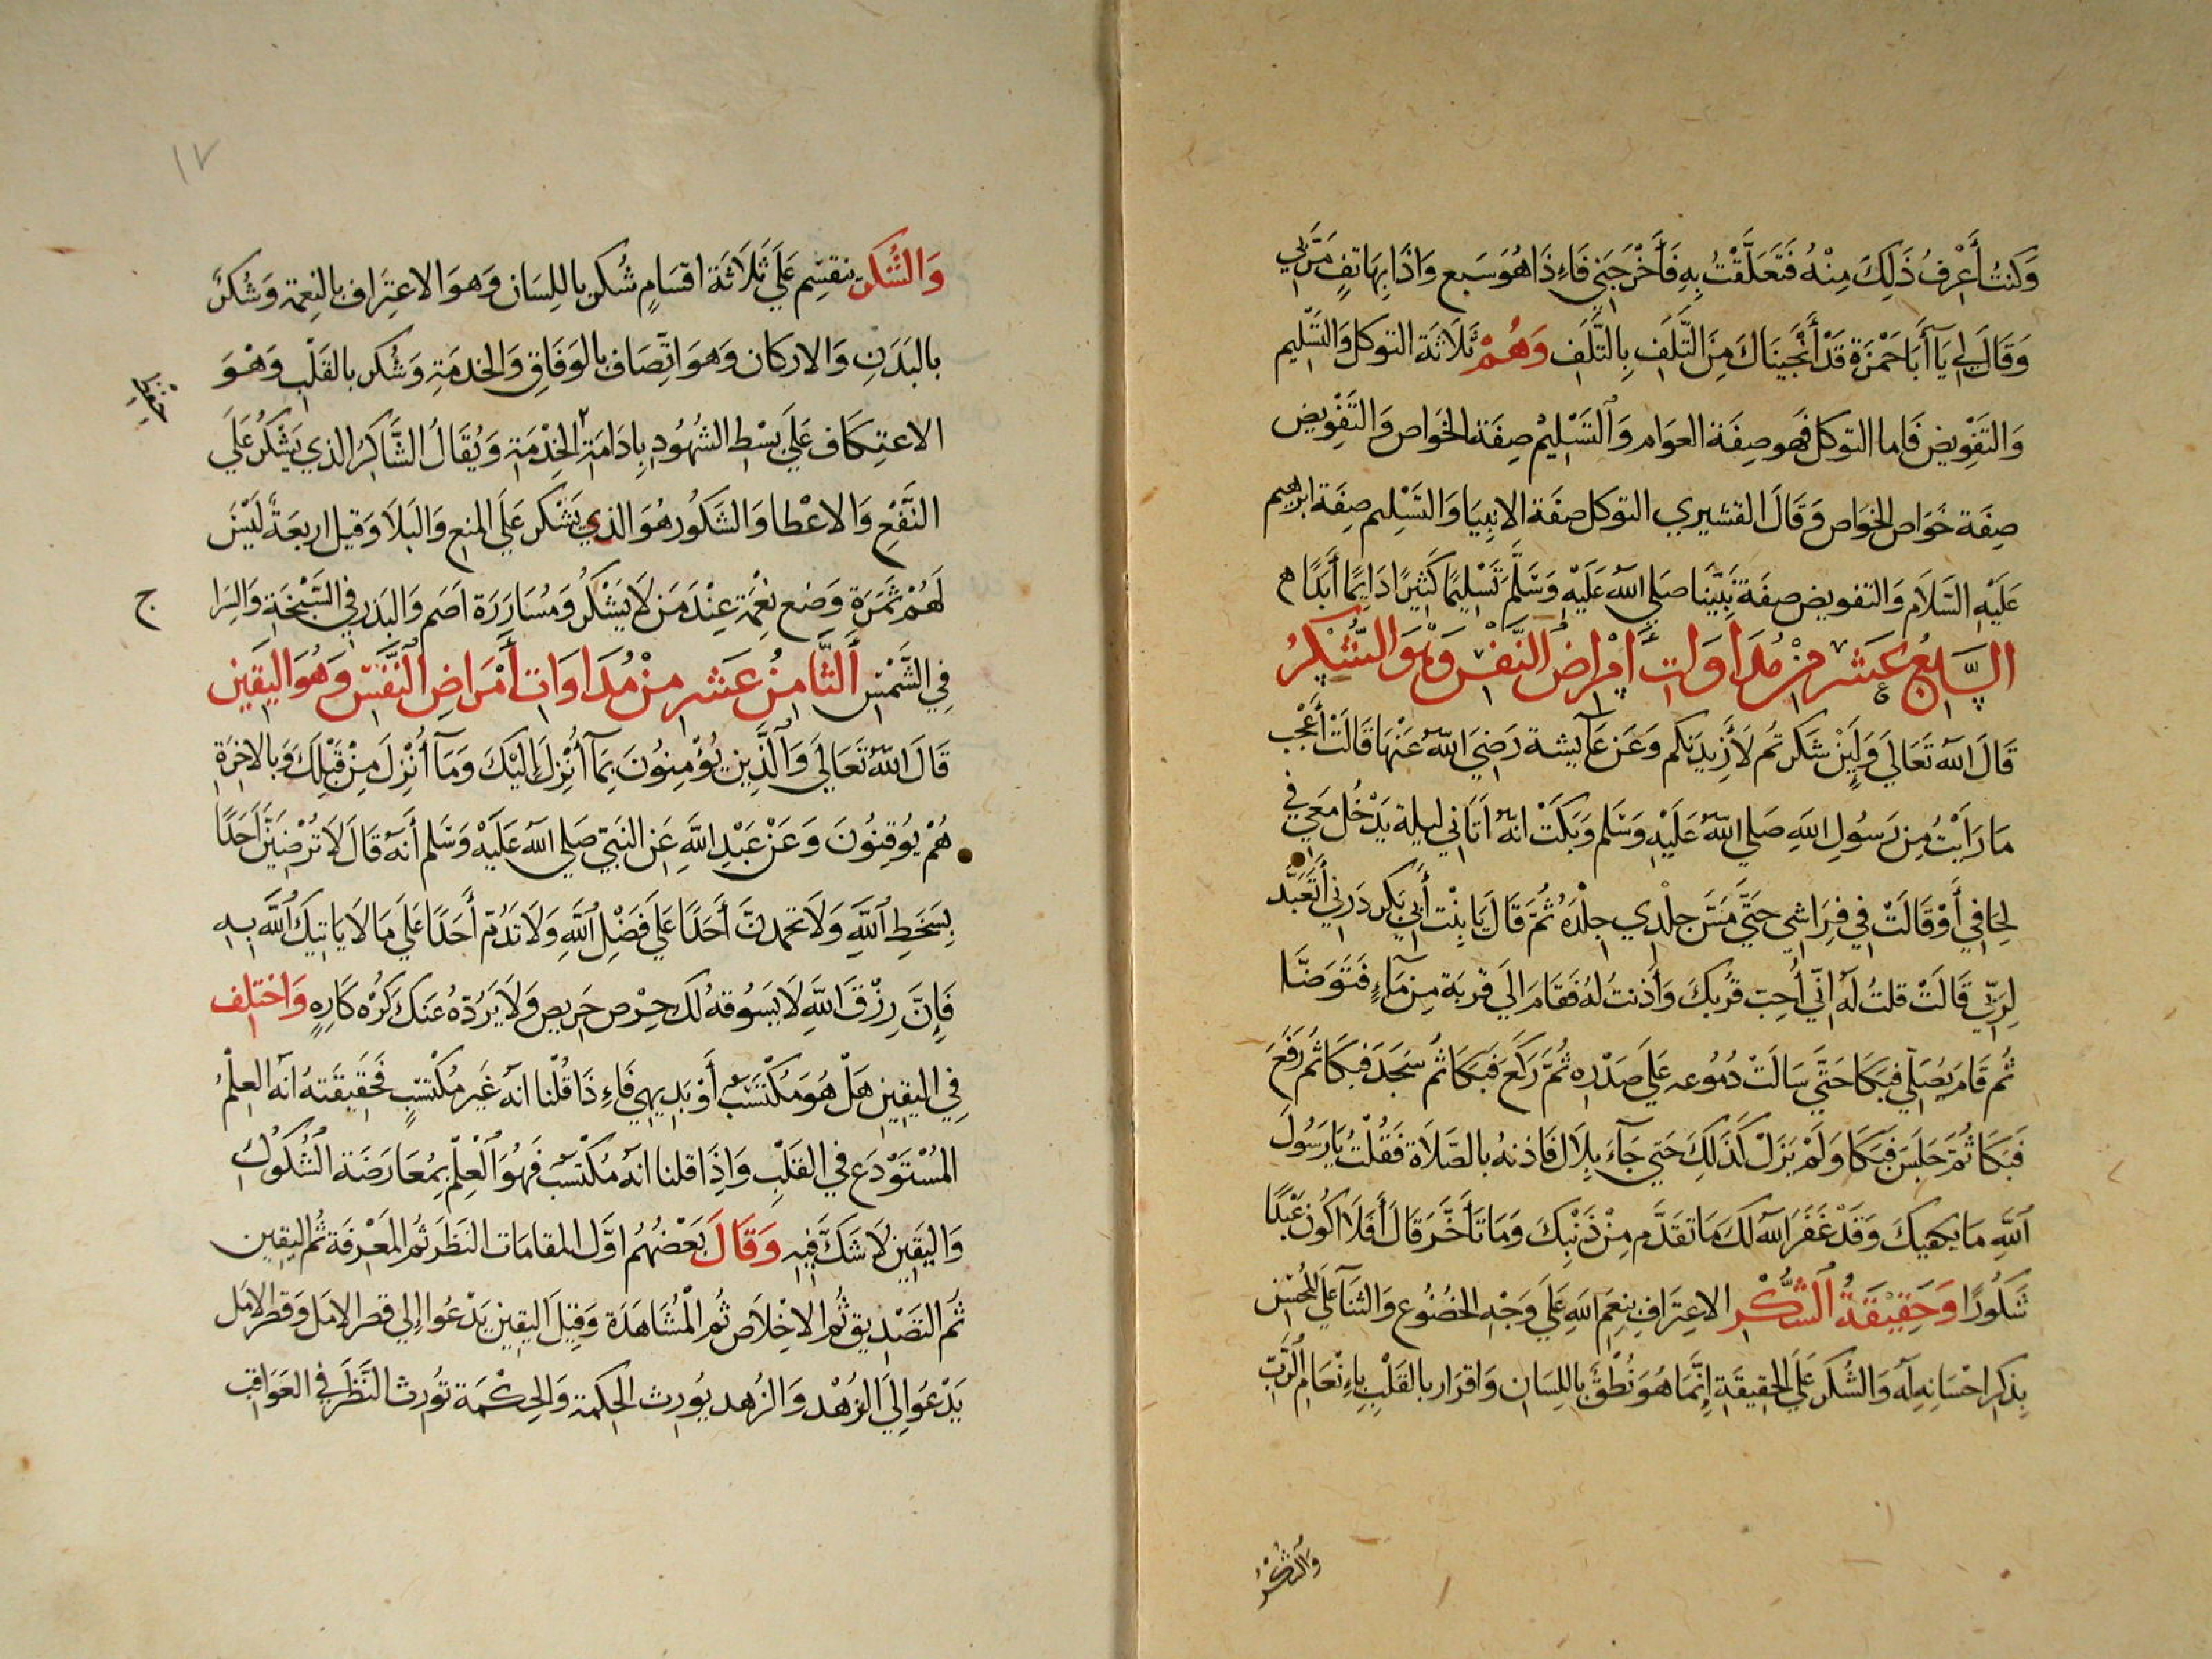 وَكنتُ أَعْرِفُ ذَلِكَ مِنْهُ فَتَعَلَّقْتُ بِهِ فَأَخْرَجَنِي فَاءِذَا هُوَ سَبع وَاذَا بِهَاتِفٍ
وَقَالَ لِي يَآ أَبَا حَمْزَة قَدْ أَنْجَيْنَاكَ مِنَ التَّلَفِ بِالتَّلَفِ وَهُمْ ثَلَاثَة التوكل وَالتَّسْلِيم
وَالتَفْوِيض فَاما التوكل فَهو صِفَة العَوَام وَالتَّسْلِيمْ صِفَة الخَواص وَالتَفْوِيض
صِفَة خوَاص الخوَاص وَقَالَ القشيري التوكل صفَة الانبِيَا وَالتَسْلِيم صِفَة ابرهيم
عَلَيْهِ السَّلَام وَالتفويض صفَة نَبِيِّنَا صَلي اللَّه عَلَيْهِ وَسَلَّمَ تَسْلِيمًا كَثِيرًا دَايِمًا أَبَدًا
السَّابِعُ عَشَر مِنْ مُدَاوَات أَمْرَاض النَّفْس وَهْوَ الشُّكْرُ
قَالَ اللَّه تَعَالَي وَلَئِنْ شَكَرتُم لَأَزِيدَنكم وَعَن عَآيشة رَضِيَ اللَّه عَنْهَا قَالَتْ أَعْجَب
مَا رَايْتُ مِن رَسُولِ اللَّهِ صَلي اللَّه عَلَيْهِ وَسَلم وَبَكَتْ انه اَتَاني ليلة يَدْخُل مَعي في
لِحَافِي أَوْ قَالَتْ فِي فِرَاشِي حَتَّي مَسَّ جِلْدِي جِلْدَهُ ثُمَّ قَالَ يَا بِنْتَ أَبِي بَكر ذرِني أَتَعَبَّد
لِرَبِّي قَالَتْ قلتُ لَه اِنِّي أُحِب قُربكَ وَأَذنتُ لهُ فَقَامَ الَي قربَة مِن مَآءٍ فَتَوَضَّا
ثُم قَامَ يُصَلِّي فبَكَا حَتَّي سَالَتْ دُمُوعه عَلي صَدْرِه ثُمَّ رَكَعَ فَبَكَا ثُم سَجَدَ فبَكَا ثُم رَفَعَ
فَبَكَا ثُمَّ جَلَسَ فَبَكَا وَلَمْ يَزَلْ كَذَلِكَ حَتي جَآءَ بِلَال فَاذنهُ بالصَّلَاة فَقُلْتُ يَا رَسُولَ
اللَّهِ مَا يبكيكَ وَقَدْ غَفَرَ اللَّه لَكَ مَا تقدَّم مِنْ ذَنْبِكَ وَمَا تَأَخَّرَ قَالَ أَفَلَا اكُون عَبْدًا
شَكُورًا وَحَقِيقَةُ الشُّكْرِ الاعِتِرَافِ بنِعَم اللَّهِ عَلَي وَجْهِ الخضُوع وَالثنَآ عَلَي المُحْسِن
بِذكر احْسَانِهِ لَه وَالشُكرَ عَلَي الحَقِيقَة إِنَّمَا هُوَ نُطْق بِاللِسَانِ وَاقرَار بالقَلْبِ بِاءِنْعَام الرَّبّ
وَالشكْرُ
١٧
وَالشُّكر ينقسِم عَلَي ثَلَاثَة اقسَامٍ شُكر باللِسَان وَهوَ الاعتِرَاف بالنِعمة وَشُكرٌ
بالبَدَنِ وَالاركَان وَهوَ اتِّصَاف بالوَفَاقِ وَالخدمَةِ وَشُكر بالقَلْبِ وَهْوَ
الاعتِكَاف عَلَي بسْطِ الشهُودِ بِادَامَةِ الخِدْمَة وَيُقَالُ الشَّاكرُ الذي يَشْكرُ عَلَي
النَّفْعِ وَالاعْطا وَالشَكُور هُوَ الذي يَشكر عَلَي المنع وَالبَلَا وَقيل اربعَةٌ لَيْسَ
لَهُمْ ثمَرَة وَضع نِعْمَة عِنْدَ مَن لَا يَشْكُرُ وَمُسَارَرَة اصَم وَالبَذر في السَّبْخَةِ وَالسِرَا
فِي الشَّمْسِ الثَّامِنُ عَشر مِنْ مُدَاوَات أَمْرَاضِ النَّفْس وَهُوَ اليَقِين
قَالَ اللَّهُ تَعَالَي وَالَّذِينَ يُؤْمِنُونَ بِمَآ أُنْزِلَ إِلَيْكَ وَمَآ أُنْزِلَ مِنْ قَبْلِكَ وَبالآخِرَةِ
هُمْ يُوقِنُونَ وَعَنْ عَبْدِ اللَّهِ عَن النَّبِيّ صَلي اللَّه عَلَيْهِ وَسَلم أَنَّهُ قَالَ لَا تُرْضِيَنَّ أَحَدًا
بِسَخَطِ اللَّهِ وَلَا تحمدنَّ أَحَدًا عَلَي فَضْلِ اللَّهِ وَلَا تَذُمّ أَحَدًا عَلَي مَا لَا يَاتيكَ اللَّه بِهِ
فَإِنَّ رِزْقَ اللَّهِ لَا يَسُوقهُ لك حِرْص حَرِيص وَلَا يَرُدّهُ عَنكَ كَرْه كَارِهٍ وَاختلِف
فِي اليَقِين هَلْ هُوَ مكْتَسَب أَوْ بَدِيهِي فَاءِذَا قُلْنا انهُ غَير مُكتَسَبٍ فَحَقِيقَتهُ انهُ العِلْمُ
المُسْتَوْدَع فِي القَلْبِ وَاِذَا قلنا انهُ مكتَسَب فَهُوَ الْعِلْم بِمُعَارَضَة الشُكُوك
وَاليَقِين لَا شَكَّ فِيهِ وَقَالَ بَعْضهُم اوَّل المقامَات النَظَر ثُم المَعْرِفَة ثُم اليَقِين
ثُم التَصْدِيق ثُم الاخِلَاص ثُم الْمُشَاهَدَة وَقِيلَ اليَقِين يَدْعُوا إِلي قصر الامَل وَقصْر الامَل
يَدْعُوا إِلَي الزُهْد وَالزُهد يُورِث الحكمة وَالحِكْمَة تُورِث النَظَر في العَوَاقِب
ج